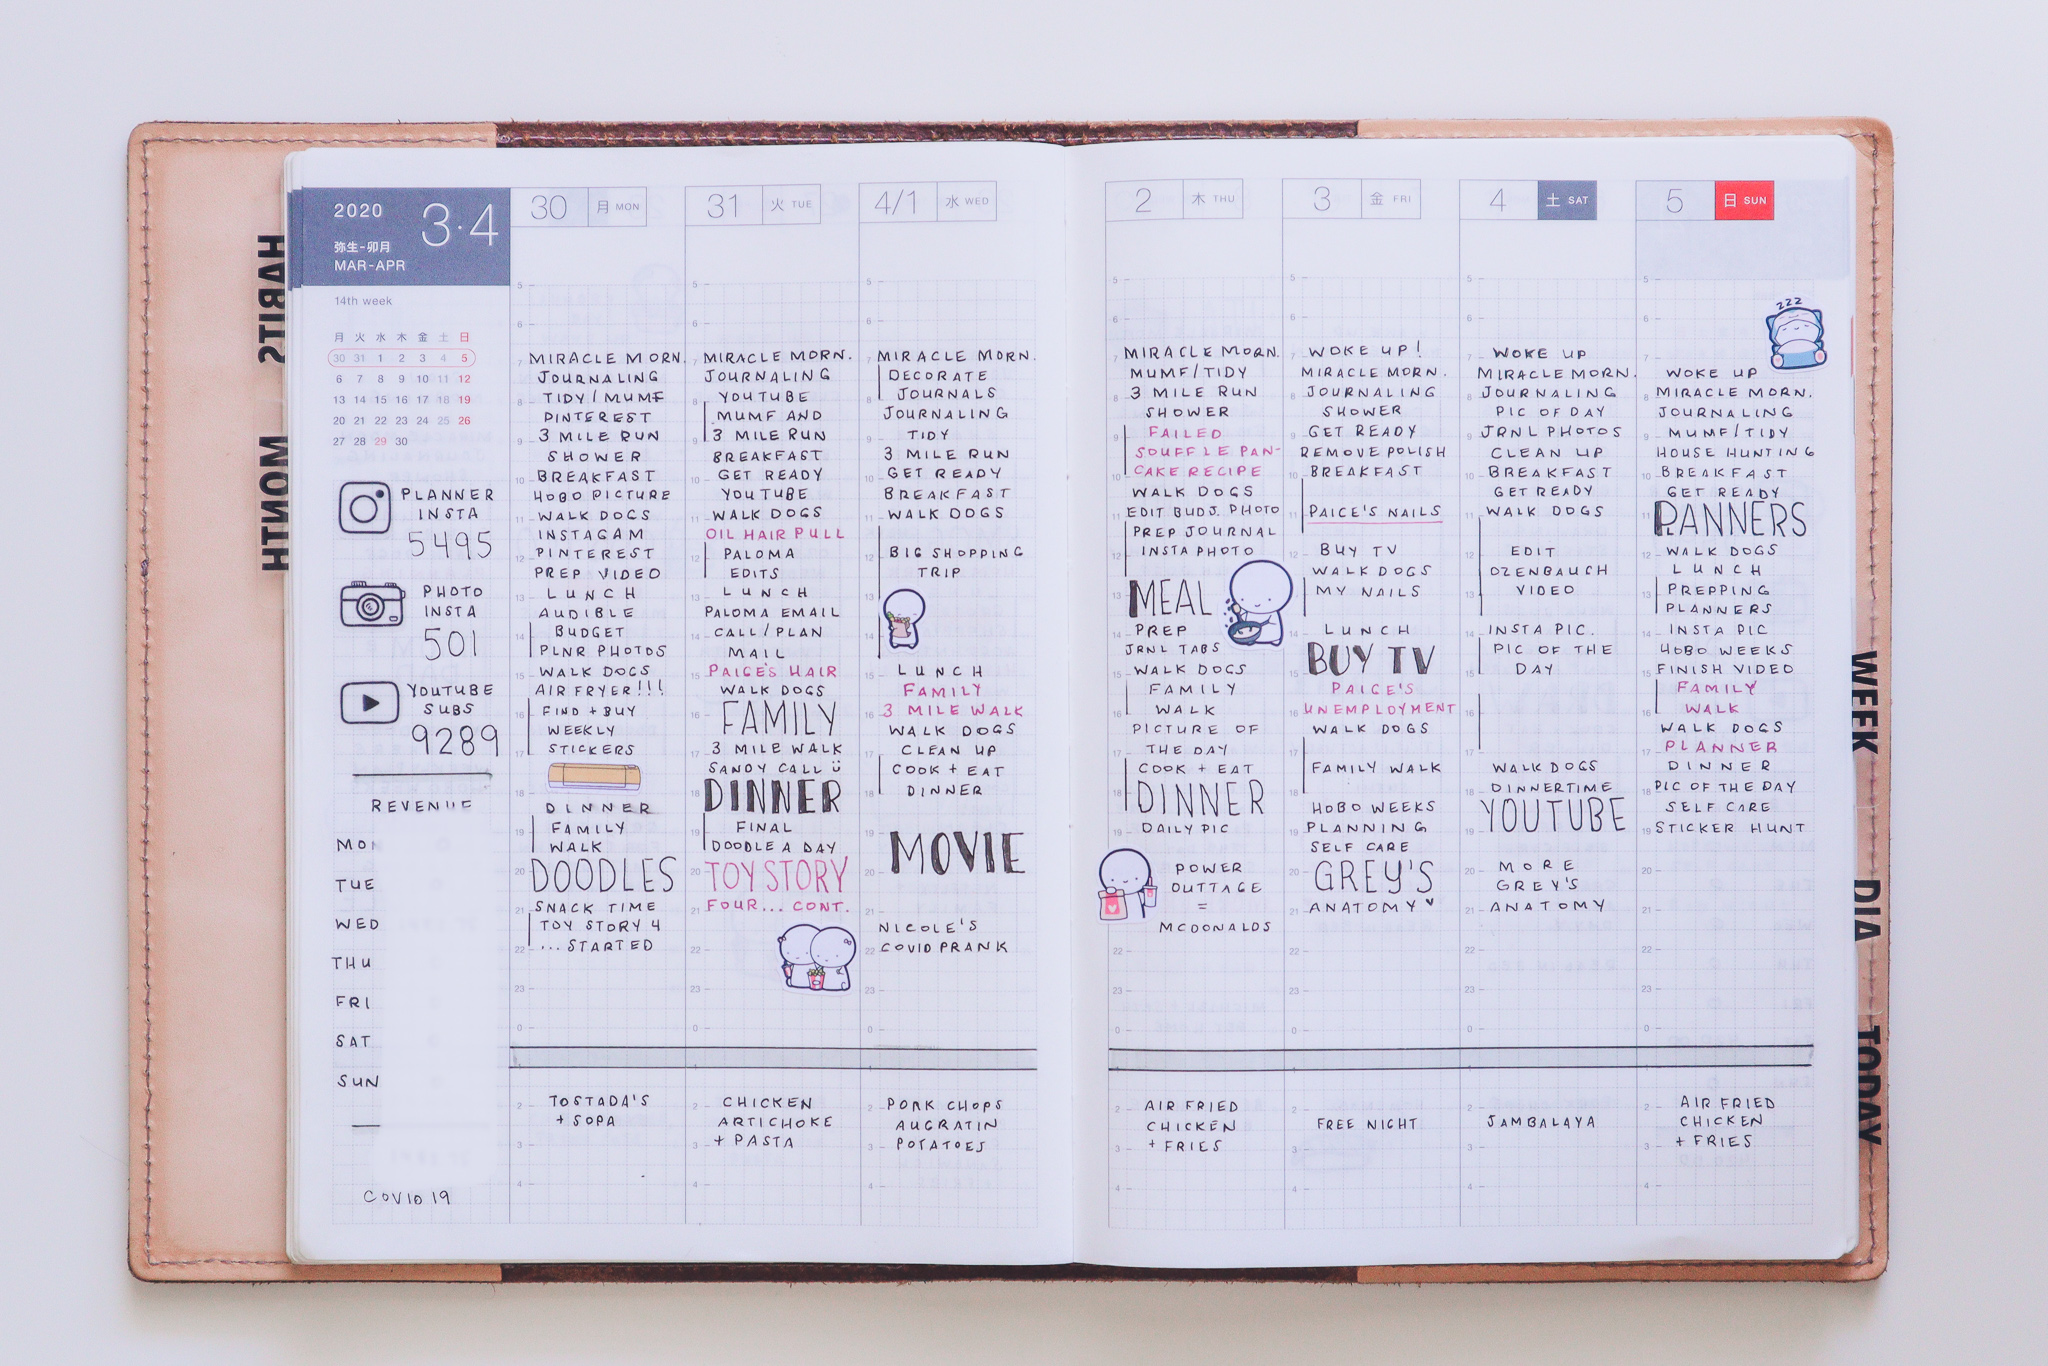 2020
3·4
弥生-卯月
MAR-APR
14th week
月 火 水 木 金 土 日
30 31 1 2 3 4 5
6 7 8 9 10 11 12
13 14 15 16 17 18 19
20 21 22 23 24 25 26
27 28 29 30
PLANNER
INSTA
5495
PHOTO
INSTA
501
YOUTUBE
SUBS
9289
REVENUE
MON
TUE
WED
THU
FRI
SAT
SUN
COVID 19
30 月 MON
MIRACLE MORN.
JOURNALING
TIDY/MUMF
PINTEREST
3 MILE RUN
SHOWER
BREAKFAST
HOBO PICTURE
WALK DOGS
INSTAGAM
PINTEREST
PREP VIDEO
LUNCH
AUDIBLE
BUDGET
PLNR PHOTOS
WALK DOGS
AIR FRYER!!!
FIND + BUY
WEEKLY
STICKERS
DINNER
FAMILY
WALK
DOODLES
SNACK TIME
TOY STORY 4
...STARTED
TOSTADA'S
+ SOPA
31 火 TUE
MIRACLE MORN.
JOURNALING
YOUTUBE
MUMF AND
3 MILE RUN
BREAKFAST
GET READY
YOUTUBE
WALK DOGS
OIL HAIR PULL
PALOMA
EDITS
LUNCH
PALOMA EMAIL
CALL/PLAN
MAIL
PAIGE'S HAIR
WALK DOGS
FAMILY
3 MILE WALK
SANDY CALL
DINNER
FINAL
DOODLE A DAY
TOY STORY
FOUR... CONT.
CHICKEN
ARTICHOKE
+ PASTA
4/1 水 WED
MIRACLE MORN.
DECORATE
JOURNALS
JOURNALING
TIDY
3 MILE RUN
GET READY
BREAKFAST
WALK DOGS
BIG SHOPPING
TRIP
LUNCH
FAMILY
3 MILE WALK
WALK DOGS
CLEAN UP
COOK + EAT
DINNER
MOVIE
NICOLE'S
COVID PRANK
PORK CHOPS
AUGRATIN
POTATOES
2 木 THU
MIRACLE MORN.
MUMF/TIDY
3 MILE RUN
SHOWER
FAILED
SOUFFLE PAN-
CAKE RECIPE
WALK DOGS
EDIT BUDJ. PHOTO
PREP JOURNAL
INSTA PHOTO
MEAL
PREP
JRNL TABS
WALK DOGS
FAMILY
WALK
PICTURE OF
THE DAY
COOK + EAT
DINNER
DAILY PIC
POWER
OUTTAGE
=
MCDONALDS
AIR FRIED
CHICKEN
+ FRIES
3 金 FRI
WOKE UP!
MIRACLE MORN.
JOURNALING
SHOWER
GET READY
REMOVE POLISH
BREAKFAST
PAIGE'S NAILS
BUY TV
WALK DOGS
MY NAILS
LUNCH
BUY TV
PAIGE'S
UNEMPLOYMENT
WALK DOGS
FAMILY WALK
HOBO WEEKS
PLANNING
SELF CARE
GREY'S
ANATOMY ♥
FREE NIGHT
4 土 SAT
WOKE UP
MIRACLE MORN.
JOURNALING
PIC OF DAY
JRNL PHOTOS
CLEAN UP
BREAKFAST
GET READY
WALK DOGS
EDIT
OZENBAUGH
VIDEO
INSTA PIC.
PIC OF THE
DAY
WALK DOGS
DINNERTIME
YOUTUBE
MORE
GREY'S
ANATOMY
JAMBALAYA
5 日 SUN
zzz
WOKE UP
MIRACLE MORN.
JOURNALING
MUMF/TIDY
HOUSE HUNTING
BREAKFAST
GET READY
PLANNERS
WALK DOGS
LUNCH
PREPPING
PLANNERS
INSTA PIC
HOBO WEEKS
FINISH VIDEO
FAMILY
WALK
WALK DOGS
PLANNER
DINNER
PIC OF THE DAY
SELF CARE
STICKER HUNT
AIR FRIED
CHICKEN
+ FRIES
HABITS
MONTH
WEEK
DIA
TODAY